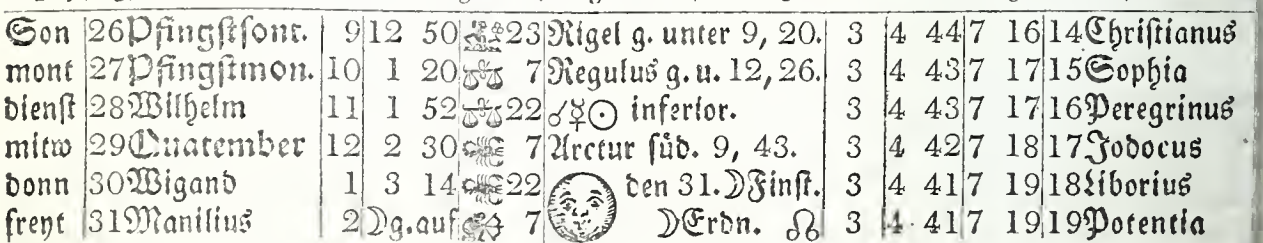 Son 26 Pfingstsont. 9 12 50 23 Rigel g. unter 9, 20. 3 4 44 7 16 14 Christianus
mont 27 Pfingstmon. 10 1 20 ♎ 7 Regulus g. u. 12, 26. 3 4 43 7 17 15 Sophia
dienst 28 Wilhelm 11 1 52 ♎ 22 ☌☿☉ inferior. 3 4 43 7 17 16 Peregrinus
mitw 29 Quatember 12 2 30 7 Arctur süd. 9, 43. 3 4 42 7 18 17 Jodocus
donn 30 Wigand 1 3 14 22 den 31. ☽Finst. 3 4 41 7 19 18 Liborius
freyt 31 Manilius 2 ☽g.auf 7 ☽Erdn. ☊ 3 4 41 7 19 19 Potentia